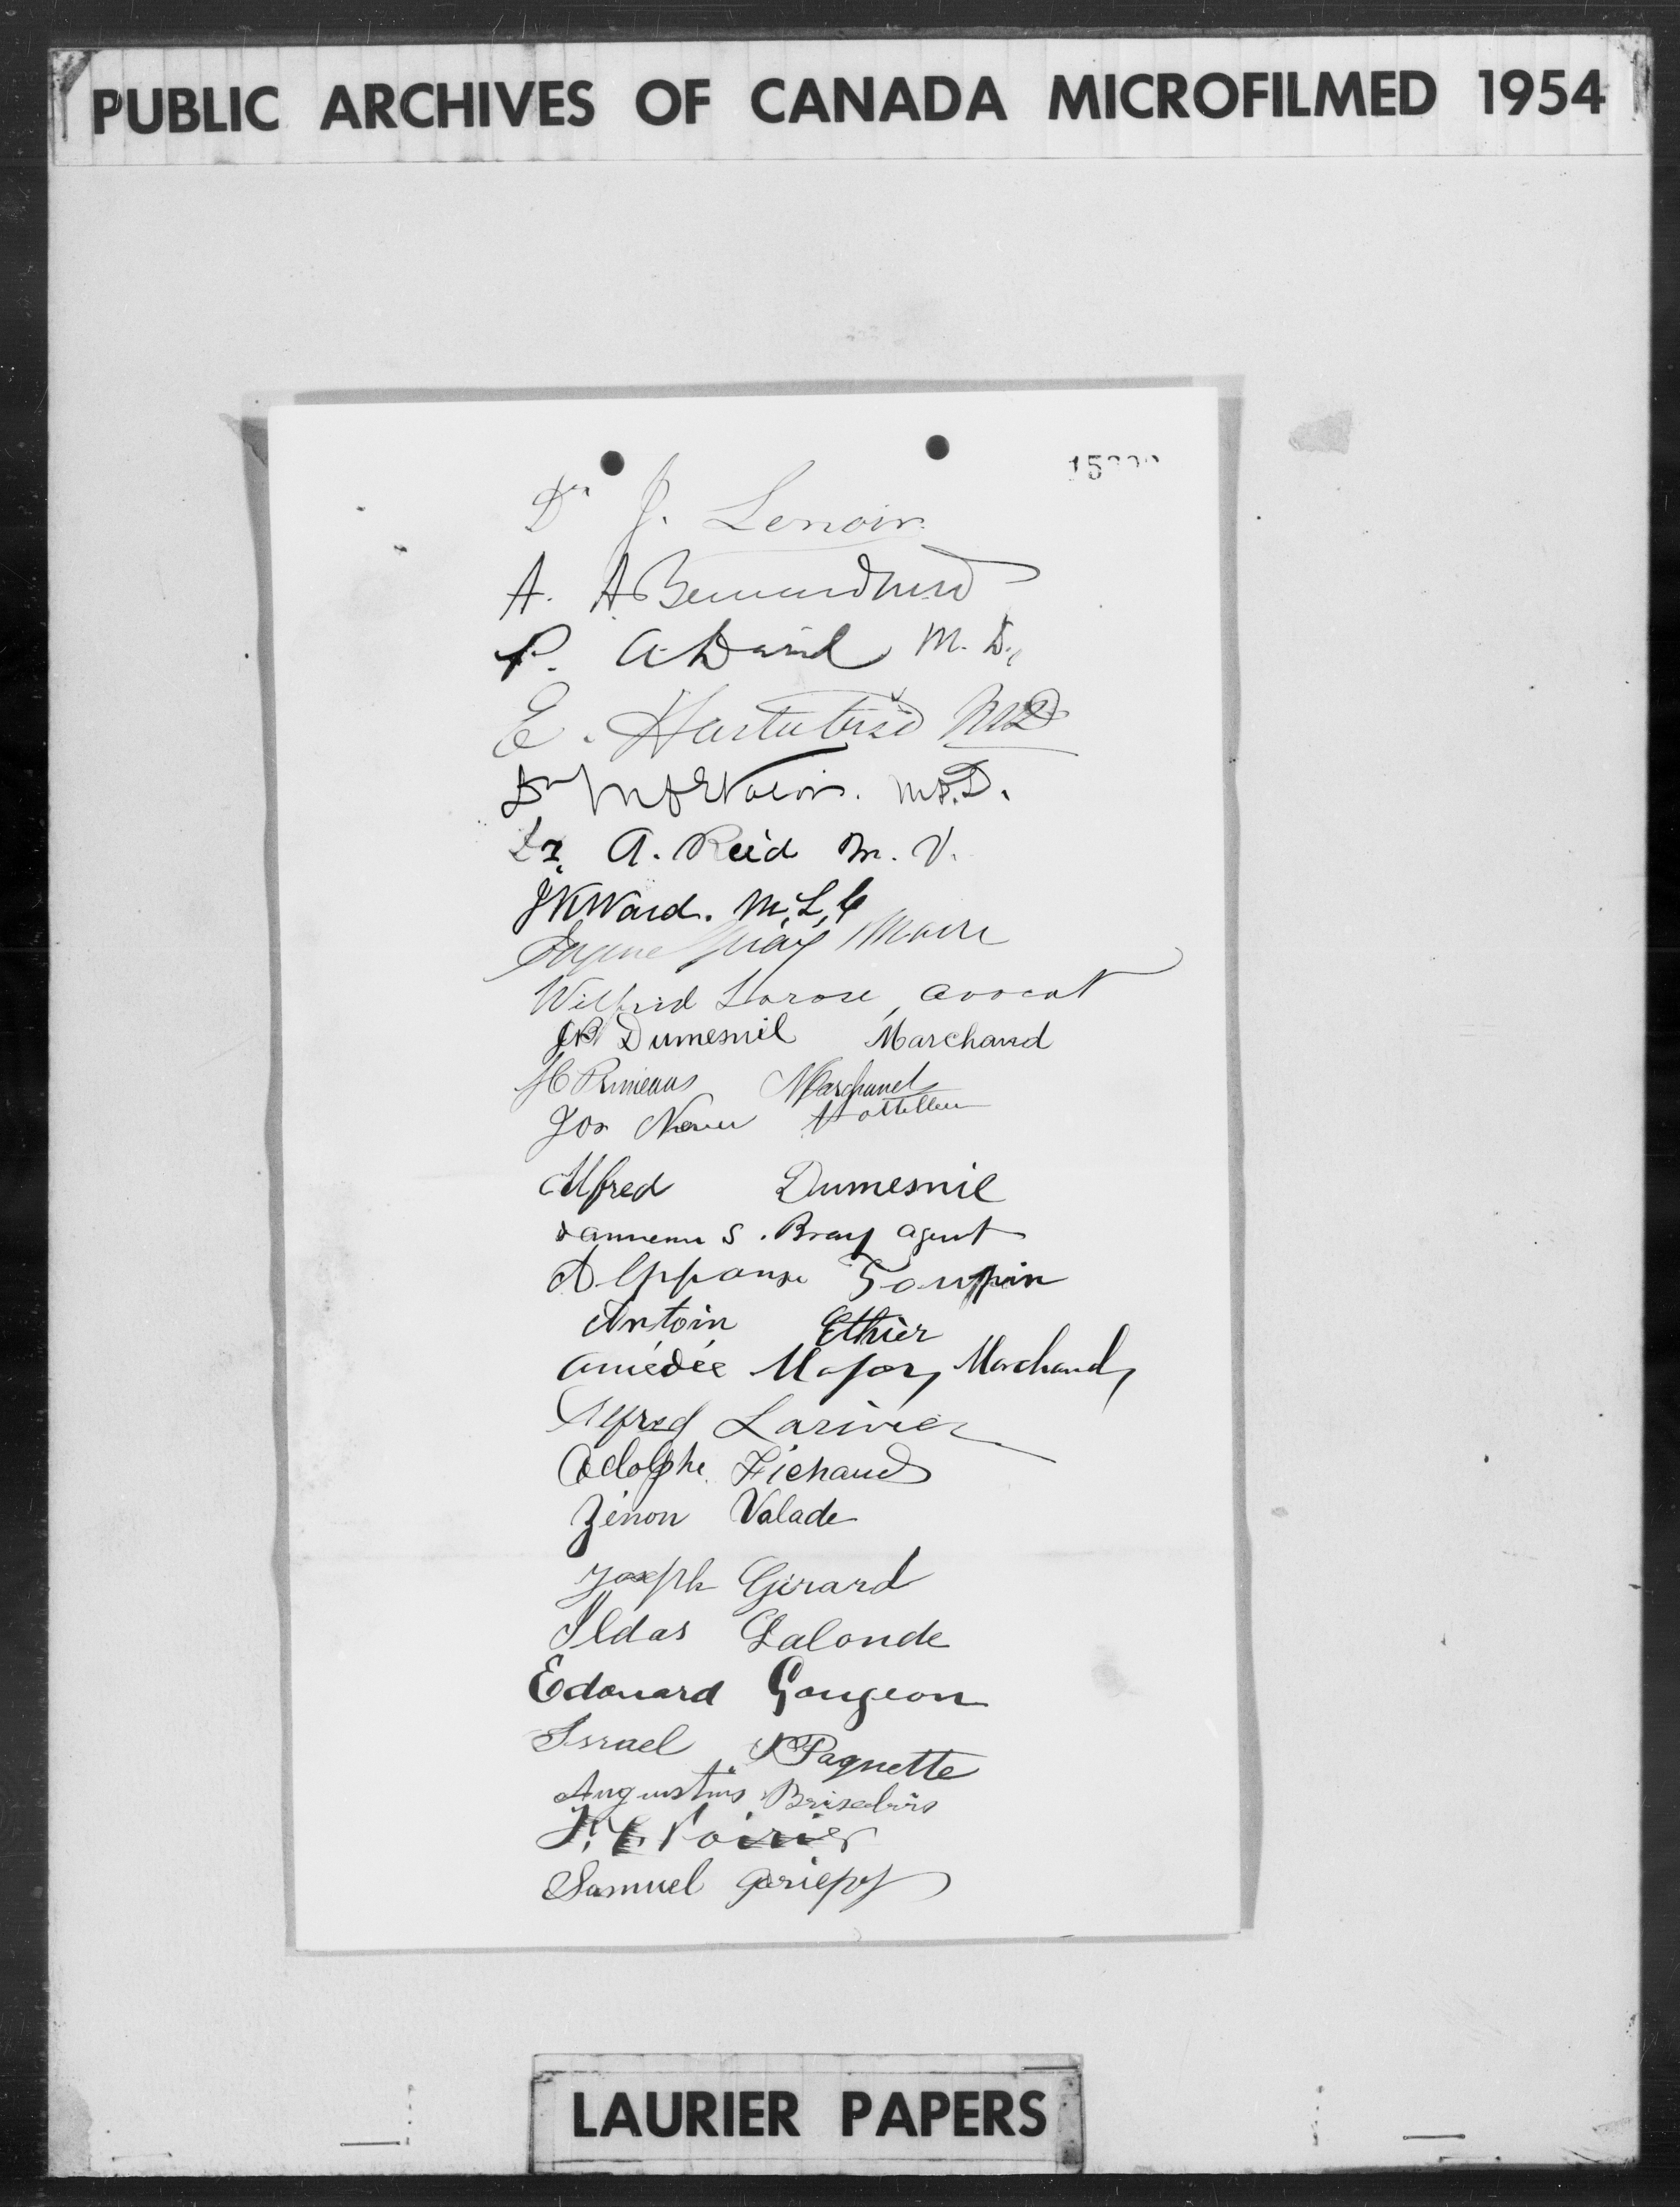 PUBLIC ARCHIVES OF CANADA MICROFILMED 1954
Dr J. Lenoir
A. A
P. A David M. D.
E. Hurtubise MD
Dr Valois. M.D.
Dr. A. Reid M. V.
J K Ward. M. L. C
Eugene Guay Maire
Wilfrid Larose, avocat
JB Dumesnil Marchand
Primeau Marchand
Jos Hottellier
Alfred Dumesnil
S. Bray agent
Alpponse Toupin
Antoin Ethier
Amédée Major, Marchand,
Alfred Larivier
Adolphe Pichaud
Zénon Valade
Joseph Girard
Ildas Lalonde
Edouard Gougeon
Israel Paquette
Augustins Brisebois
Poirier
Samuel Gariepy
LAURIER PAPERS